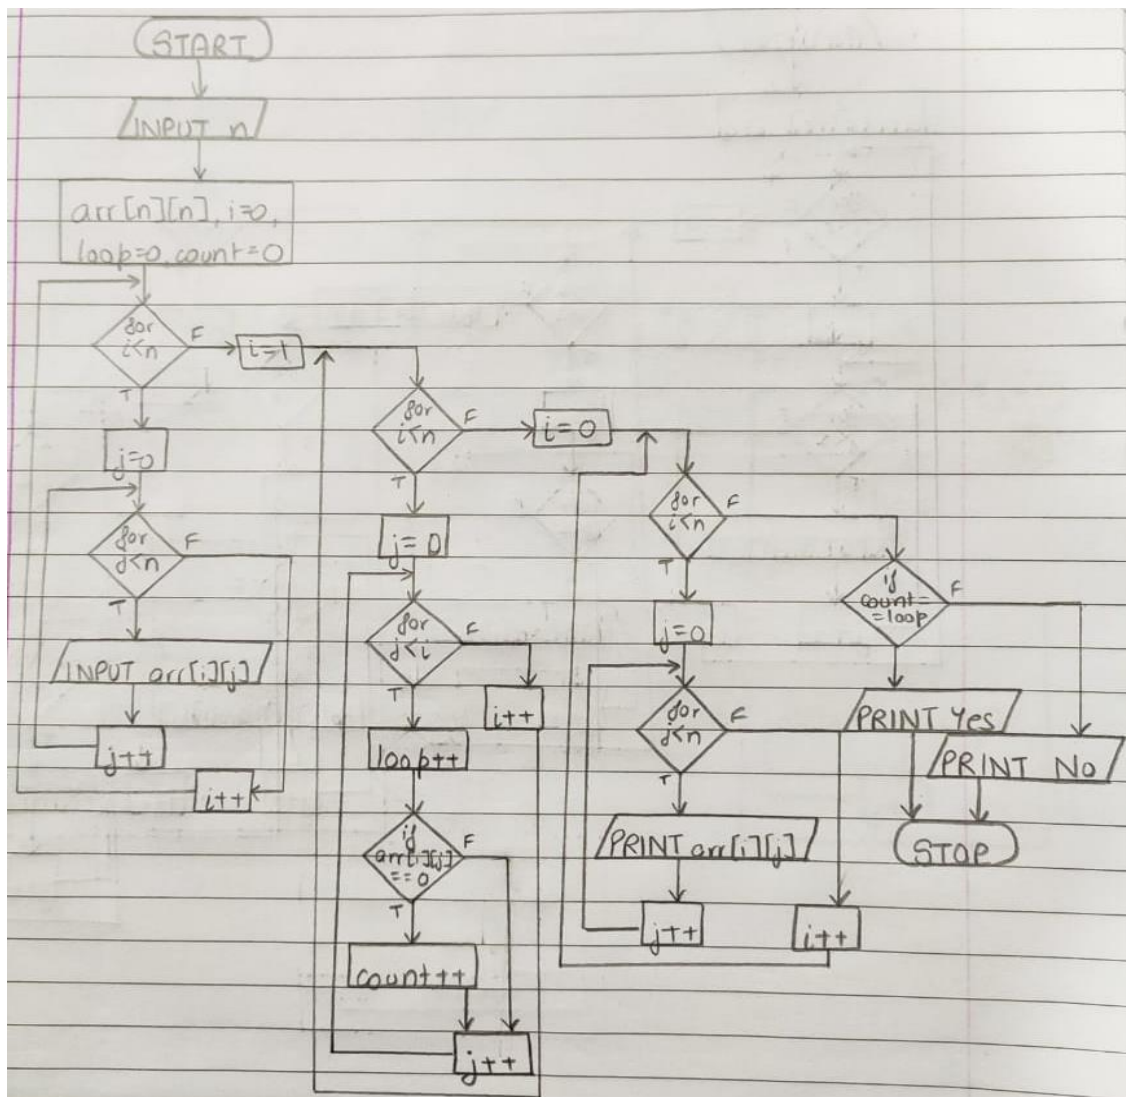 START
INPUT n
arr[n][n], i=0,
loop=0, count=0
for
i<n
F
T
j=0
for
j<n
F
T
INPUT arr[i][j]
j++
i++
i=1
for
i<n
F
T
j=0
for
j<i
F
T
i++
loop++
if
arr[i][j]
==0
F
T
count++
j++
i=0
for
i<n
F
T
j=0
for
j<n
F
T
PRINT arr[i][j]
j++
i++
if
count=
=loop
F
PRINT Yes
PRINT No
STOP